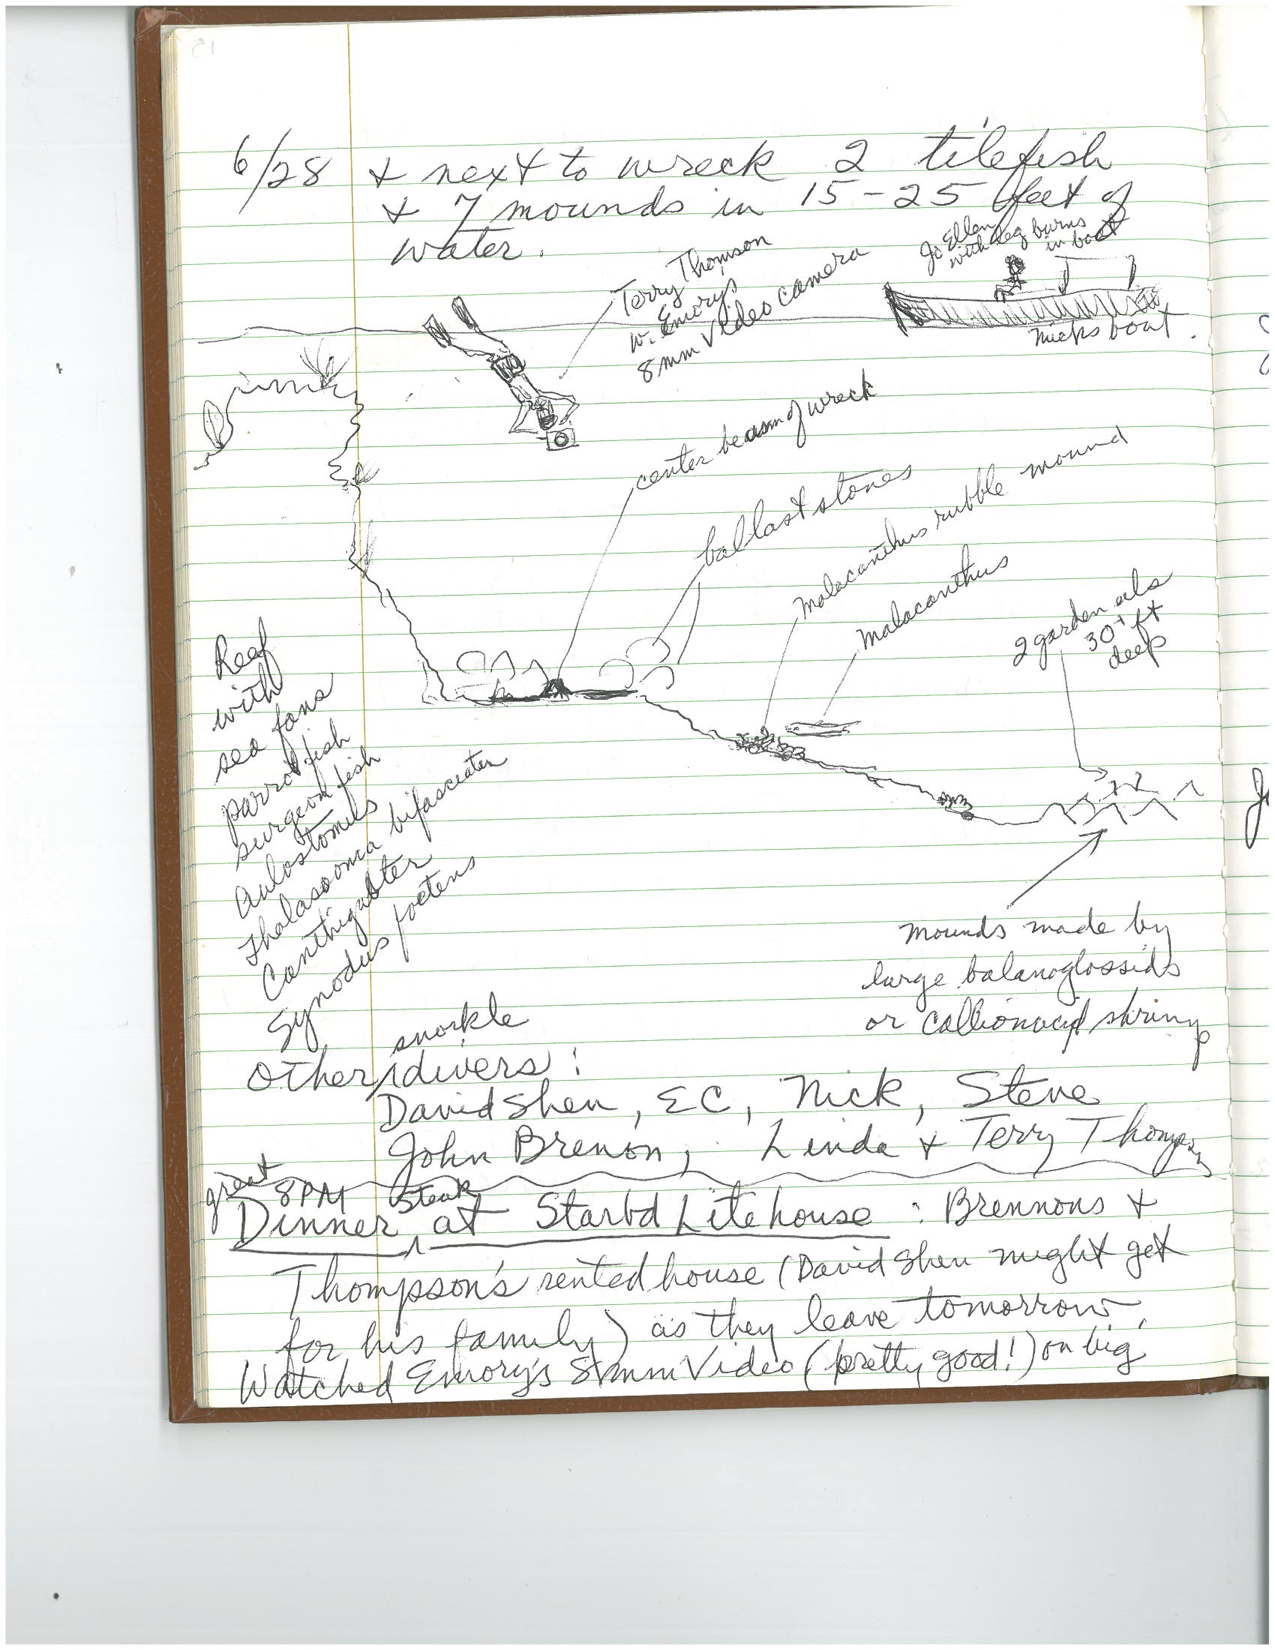 6/28 & next to wreck 2 tilefish
& 7 mounds in 15-25 feet of
water.
Terry Thomson
w. Emorys
8mm Video camera
Jo Ellen
with leg burns
in boat
Nicks boat.
center beam of wreck
ballast stones
malacanthus rubble mound
malacanthus
2 garden eels
30+ ft
deep
Reef
with
sea fans
parrotfish
surgeonfish
Aulostomus
Thalasooma bifasciatum
Canthigaster
Synodus foetens
mounds made by
large balanoglossids
or callionacid shrimp
snorkle
Other divers:
David Shen, EC, Nick, Steve
John Brenon, Linda & Terry Thompson
great 8PM Steak
Dinner at Starbd Litehouse : Brennons &
Thompson's rented house (David Shen might get
for his family) as they leave tomorrow,
Watched Emory's 8mm Video (pretty good!) on big